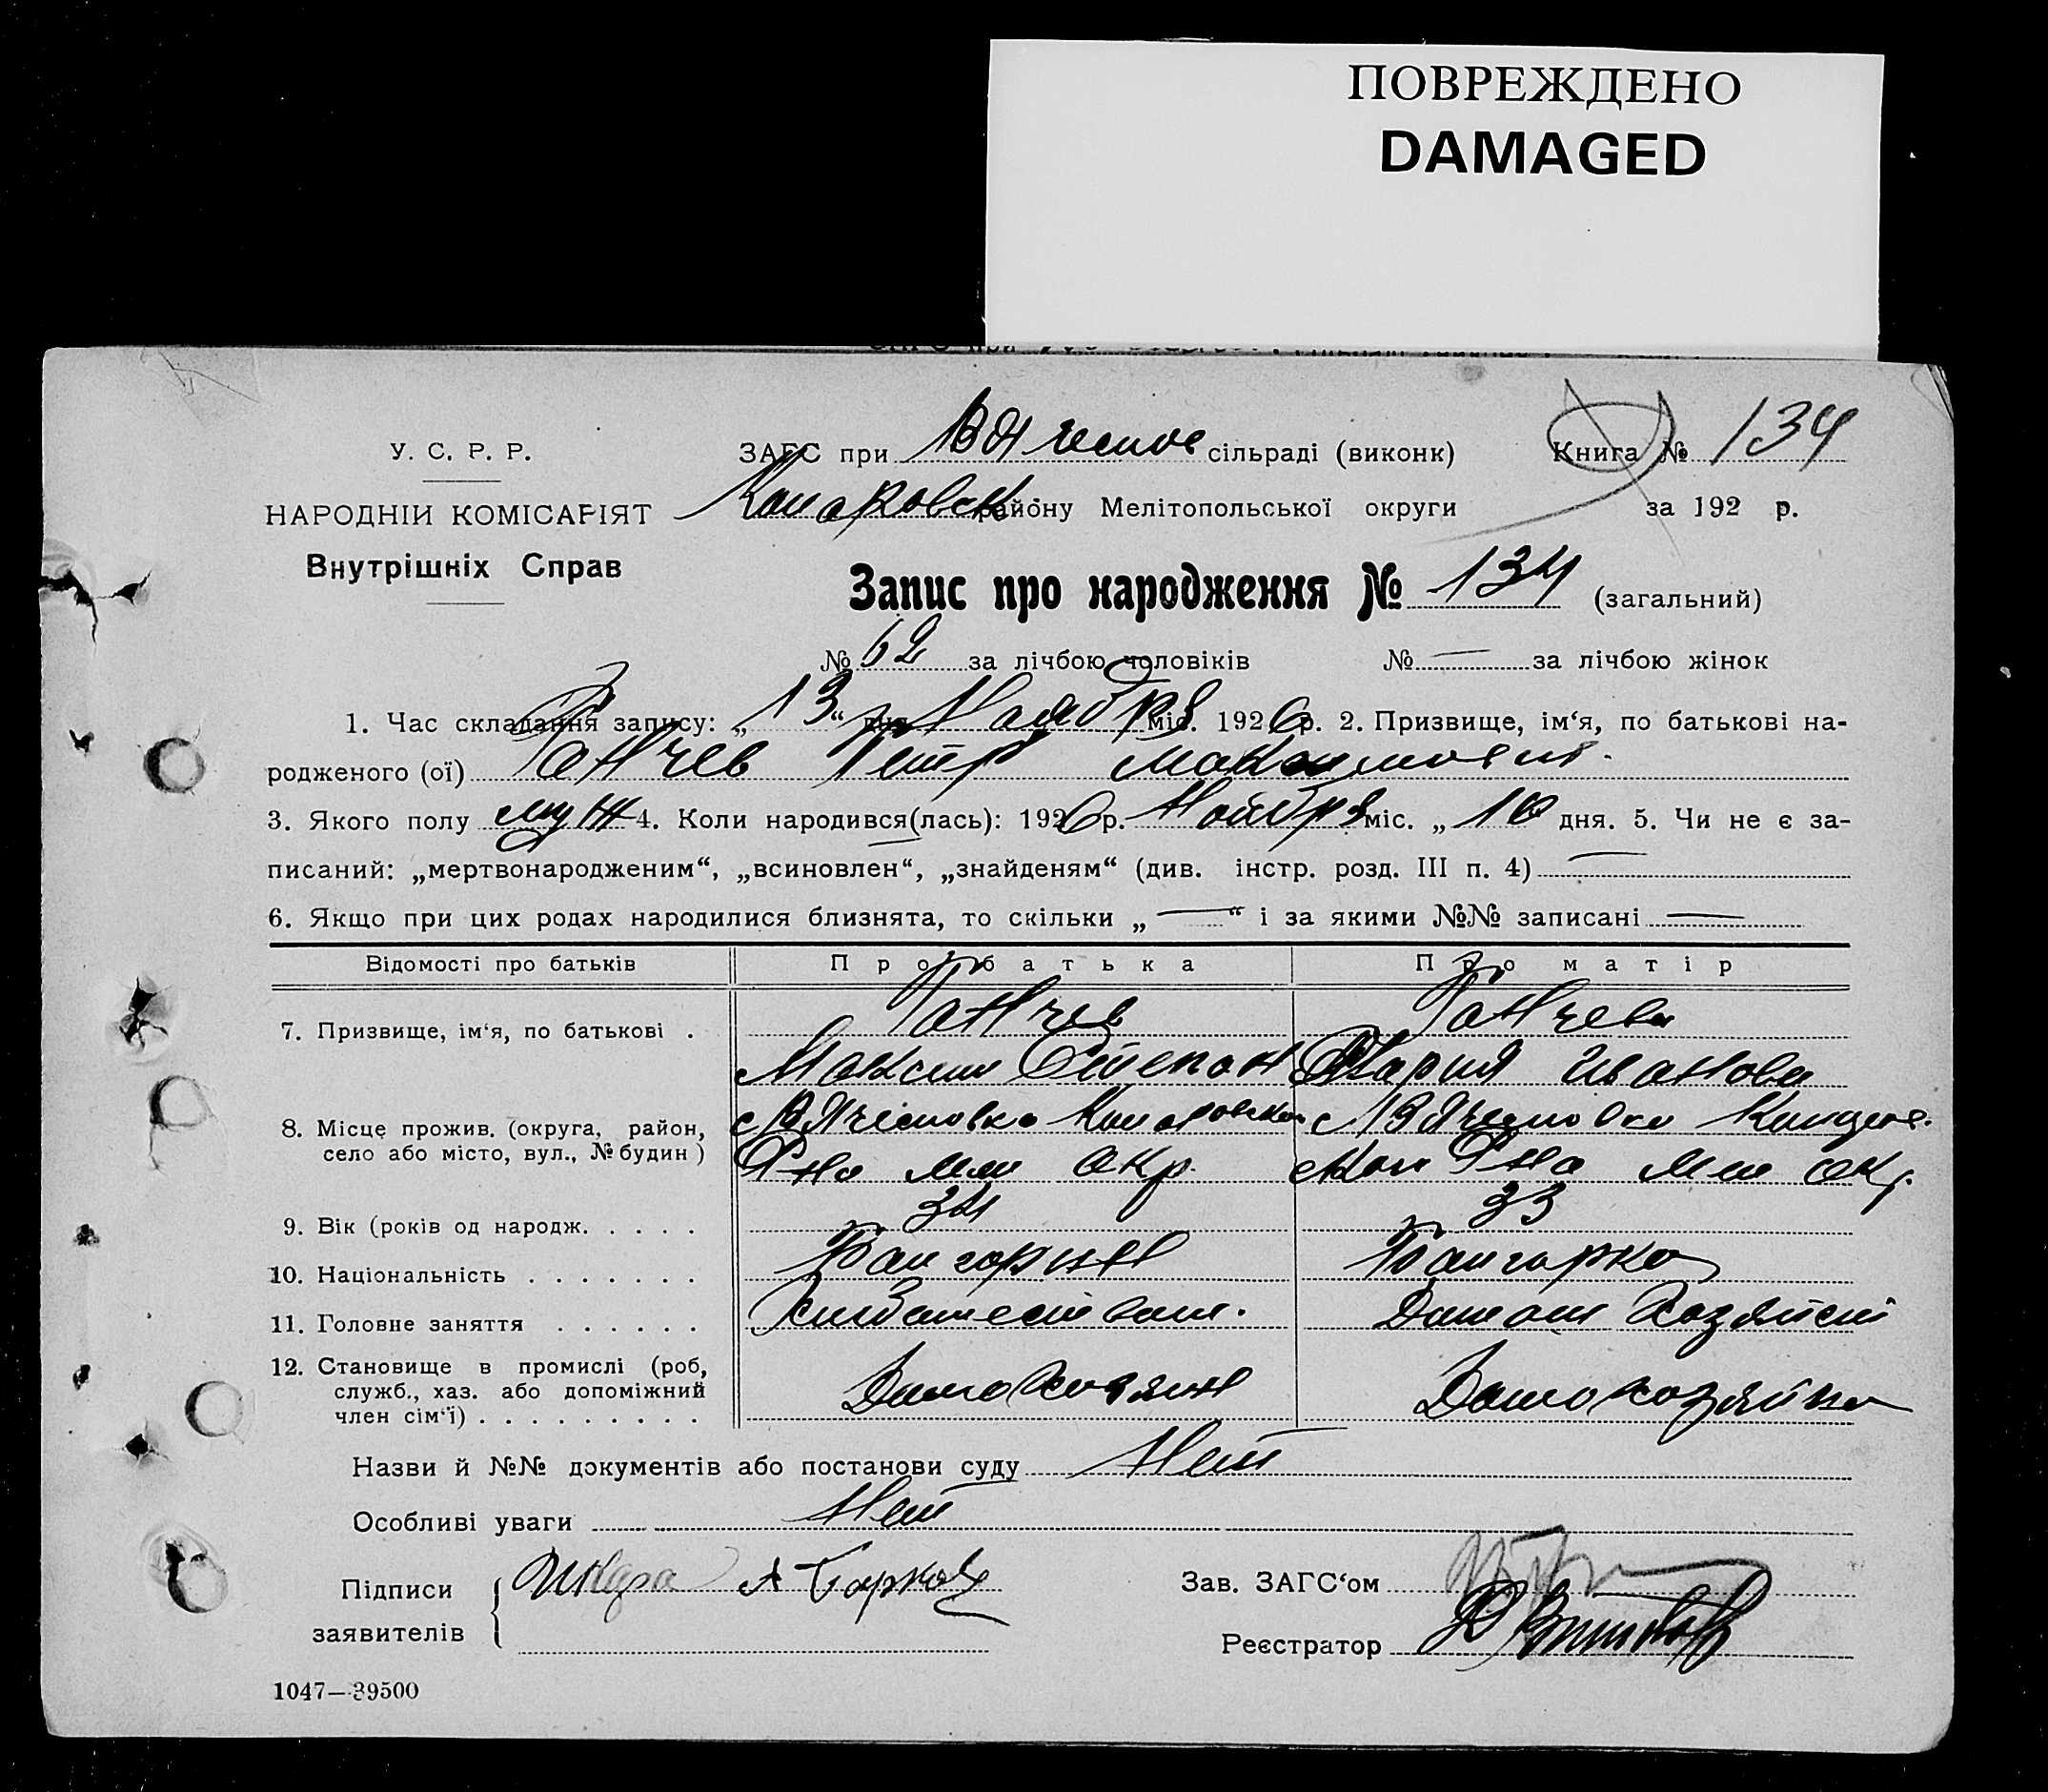 ПОВРЕЖДЕНО
DAMAGED
У. С. Р. Р.
НАРОДНІЙ КОМІСАРІЯТ
Внутрішніх Справ
ЗАГС при сільраді (виконк) Книга № 134
району Мелітопольської округи за 192 р.
Запис про народження № 134 (загальний)
№ 62 за лічбою чоловіків № — за лічбою жінок
1. Час складання запису: „13“ дня Ноября міс. 1926 р. 2. Призвище, ім‘я, по батькові на-
родженого (ої) Ганчев Петр Максимович.
3. Якого полу муж 4. Коли народився(лась): 1926 р. Ноября міс. „10 дня. 5. Чи не є за-
писаний: „мертвонародженим“, „всиновлен“, „знайденям“ (див. інстр. розд. III п. 4) —
6. Якщо при цих родах народилися близнята, то скільки „—“ і за якими №№ записані —
Відомості про батьків Про батька Про матір
7. Призвище, ім‘я, по батькові . Ганчев Ганчева
Максим Степан Мария Иванова
8. Місце прожив. (округа, район,
село або місто, вул., № будин) Рна Мел Окр. Рна Мел Окр.
9. Вік (років од народж. . . . . 34 33
10. Національність . . . . . . . Балгарин Балгарка
11. Головне заняття . . . . . . Хлебопашест
12. Становище в промислі (роб,
служб., хаз. або допоміжний
член сім‘ї) . . . . . . . . . Домохозяин Домохозяйка
Назви й №№ документів або постанови суду Нет
Особливі уваги Нет
Підписи
заявителів
Зав. ЗАГС‘ом
Реєстратор
1047—39500